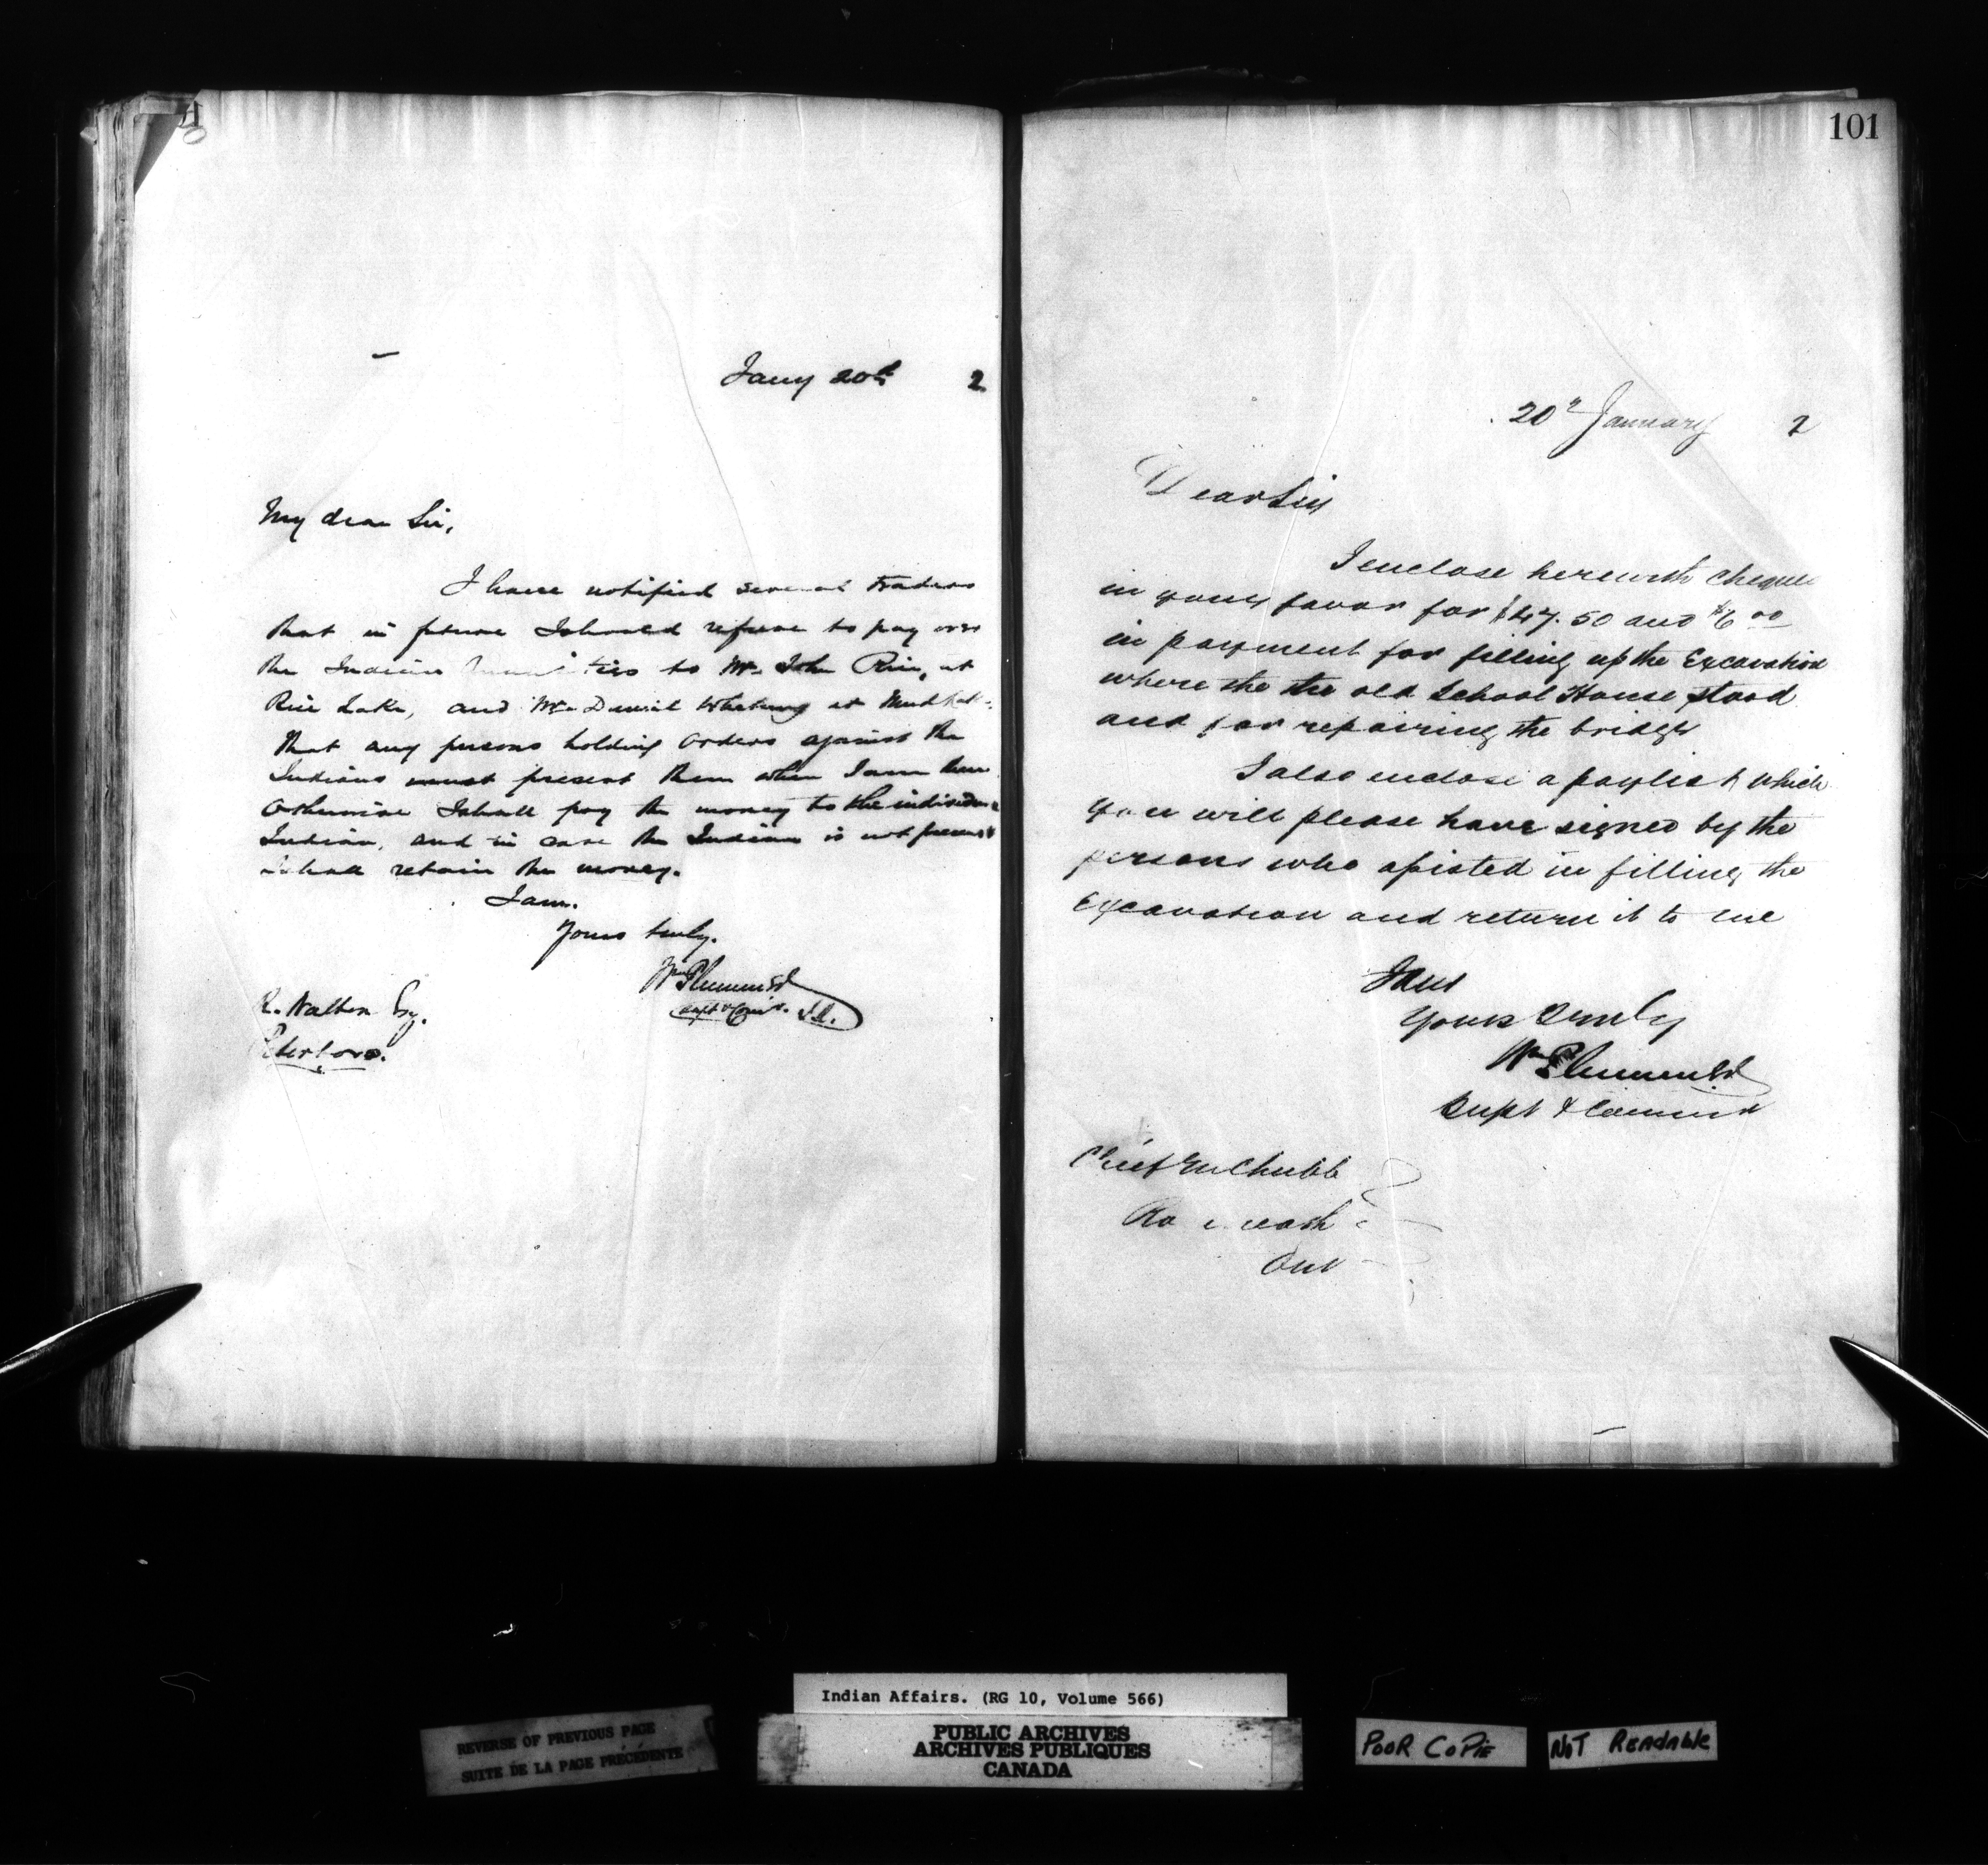 Jany 20th 2
My dear Sir,
I have notified several traders
that in future I should refuse to pay over
the Indian to Mr. John Rice, at
Rice Lake, and Mr. Daniel Whetung at Mud Lake.
that any persons holding orders against the
Indians must present them when I am there
otherwise I shall pay the money to the individual
Indian, and in case the Indian is not present
I shall retain the money.
I am.
Yours truly.
Wm Plummer
Supt & Comr. I.A.
R. Walton Esq.
Peterboro.
101
20th January 2
Dear Sir
I enclose herewith cheques
in your favor for $47.50 and $6 00
in payment for filling up the Excavation
where the the old School House stood
and for repairing the bridge
I also enclose a paylist which
you will please have signed by the
persons who assisted in filling the
Excavation and return it to me
I am
Yours truly
Wm Plummer
Supt & Commr
Chief M Chubb
Ont
Indian Affairs. (RG 10, Volume 566)
REVERSE OF PREVIOUS PAGE
SUITE DE LA PAGE PRÉCÉDENTE
PUBLIC ARCHIVES
ARCHIVES PUBLIQUES
CANADA
POOR COPIE
NOT READABLE